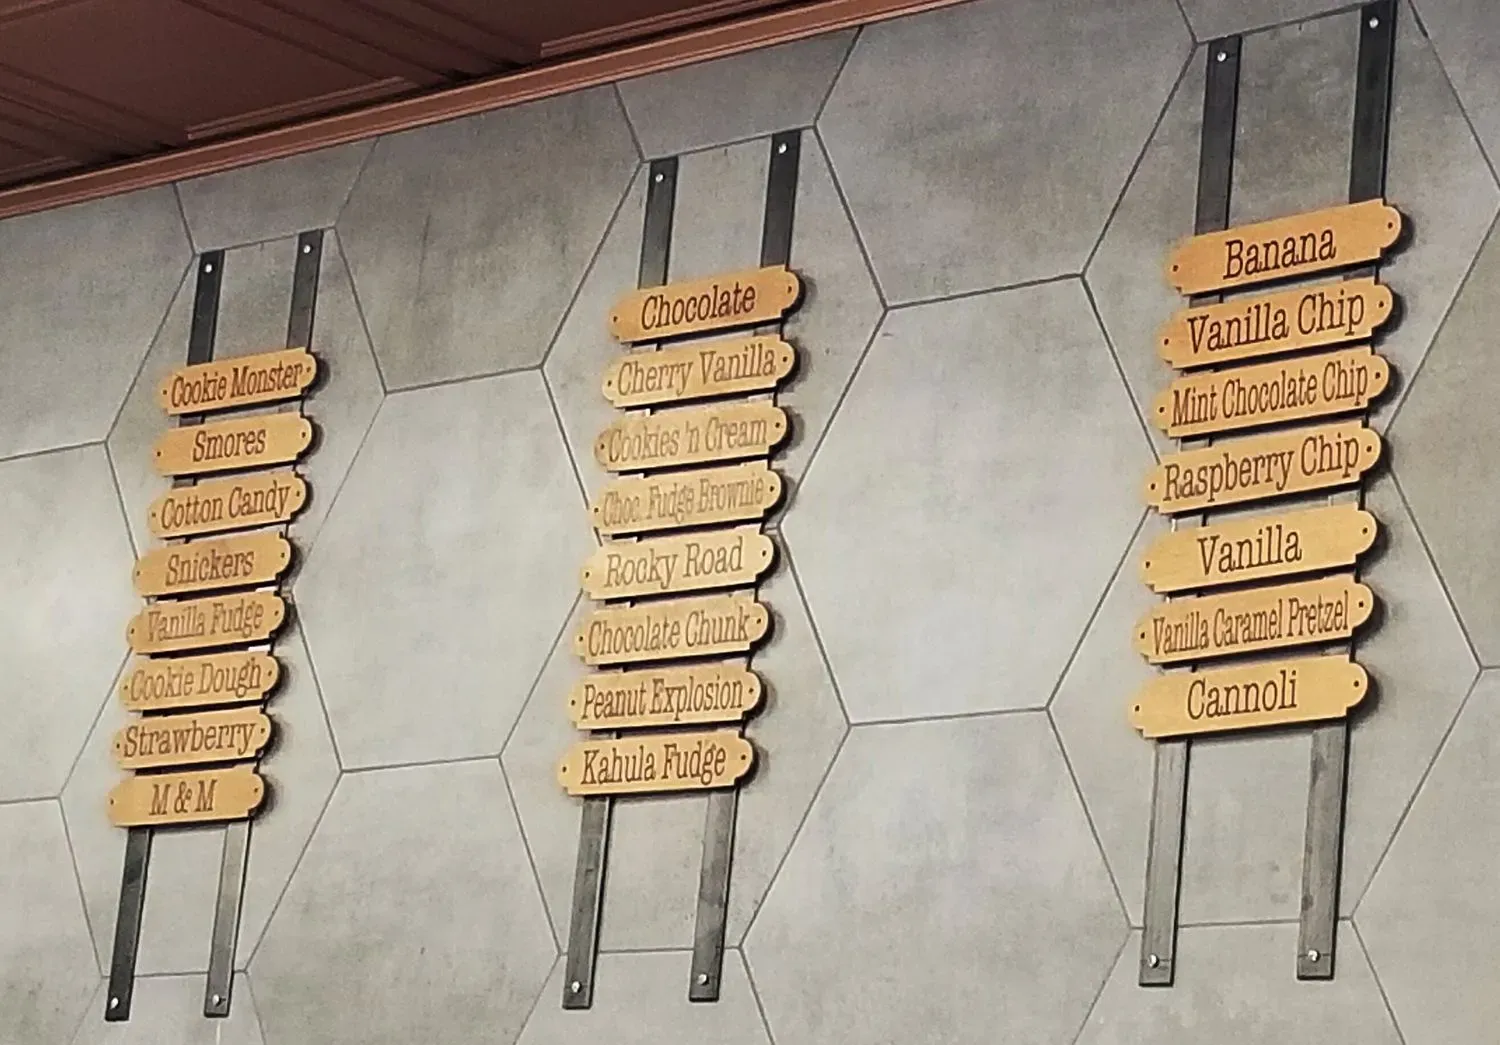 Cookie Monster
Smores
Cotton Candy
Snickers
Vanilla Fudge
Cookie Dough
Strawberry
M & M
Chocolate
Cherry Vanilla
Cookies 'n Cream
Choc. Fudge Brownie
Rocky Road
Chocolate Chunk
Peanut Explosion
Kahula Fudge
Banana
Vanilla Chip
Mint Chocolate Chip
Raspberry Chip
Vanilla
Vanilla Caramel Pretzel
Cannoli